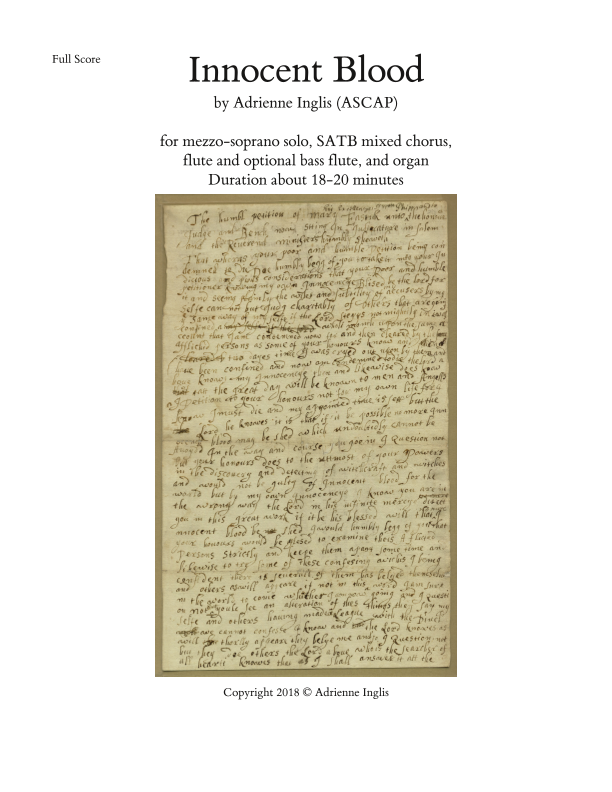 Full Score
Innocent Blood
by Adrienne Inglis (ASCAP)
for mezzo-soprano solo, SATB mixed chorus,
flute and optional bass flute, and organ
Duration about 18-20 minutes
The humbl petition of Mary unto
Judge and now sitting In in Salem
and the Reverend ministers humbly
That wheras your poor and humble being con
demned to die Doe humbly begg of you to take it into your
considerations that your Poor and humble
knowing my own Innocencye Blised be the Lord for
it and seeing plainly the wiles and of my accusers by my
selfe can not but Judg charitably of others that are
the same way of my selfe if the Lord not
confined a whole month upon the same
account that I am condemned now for and then cleared by
afflicted persons as some of your honours know and
two dayes time I was cryed out upon by them and
have been confined and now am condemned to die the Lord
above knows my Innocencye then and likewise does now
att the great day will be known to men and Angells
I Petition to your honours not for my own life for I
know I must die and my appointed time is sett but the
Lord he knowes it is that if it be possible no more Inno
cent blood may be shed which undoubtidly cannot be
In the way and course you goe in I Question not
but your honours does to the uttmost of your Powers
in the discovery and detecting of witchcraft and witches
and would not be gulty of Innocent blood for the
world but by my own Innocencye I know you are in
the wrong way the Lord in his infinite mercye direct
you in this great work if it be his blessed will that
innocent blood be shed I would humbly begg of you that
your honours would be plesed to examine theis Afflicted
Persons strictly and keepe them apart some time and
likewise to try some of these confesing wichis I being
confident there is severall of them has belyed themselves
and others as will appeare if not in this world I am sure
in the world to come whither I am now going and I Questi
on not youle see an alteration of thes things they say my
selfe and others having made a League with the Divel
we cannot confesse I know and the Lord knowes as
will shortly appeare they belye me and so I Question not
but they doe others the Lord above who is the searcher of
all hearts knowes that as I shall answer it att the
Copyright 2018 © Adrienne Inglis